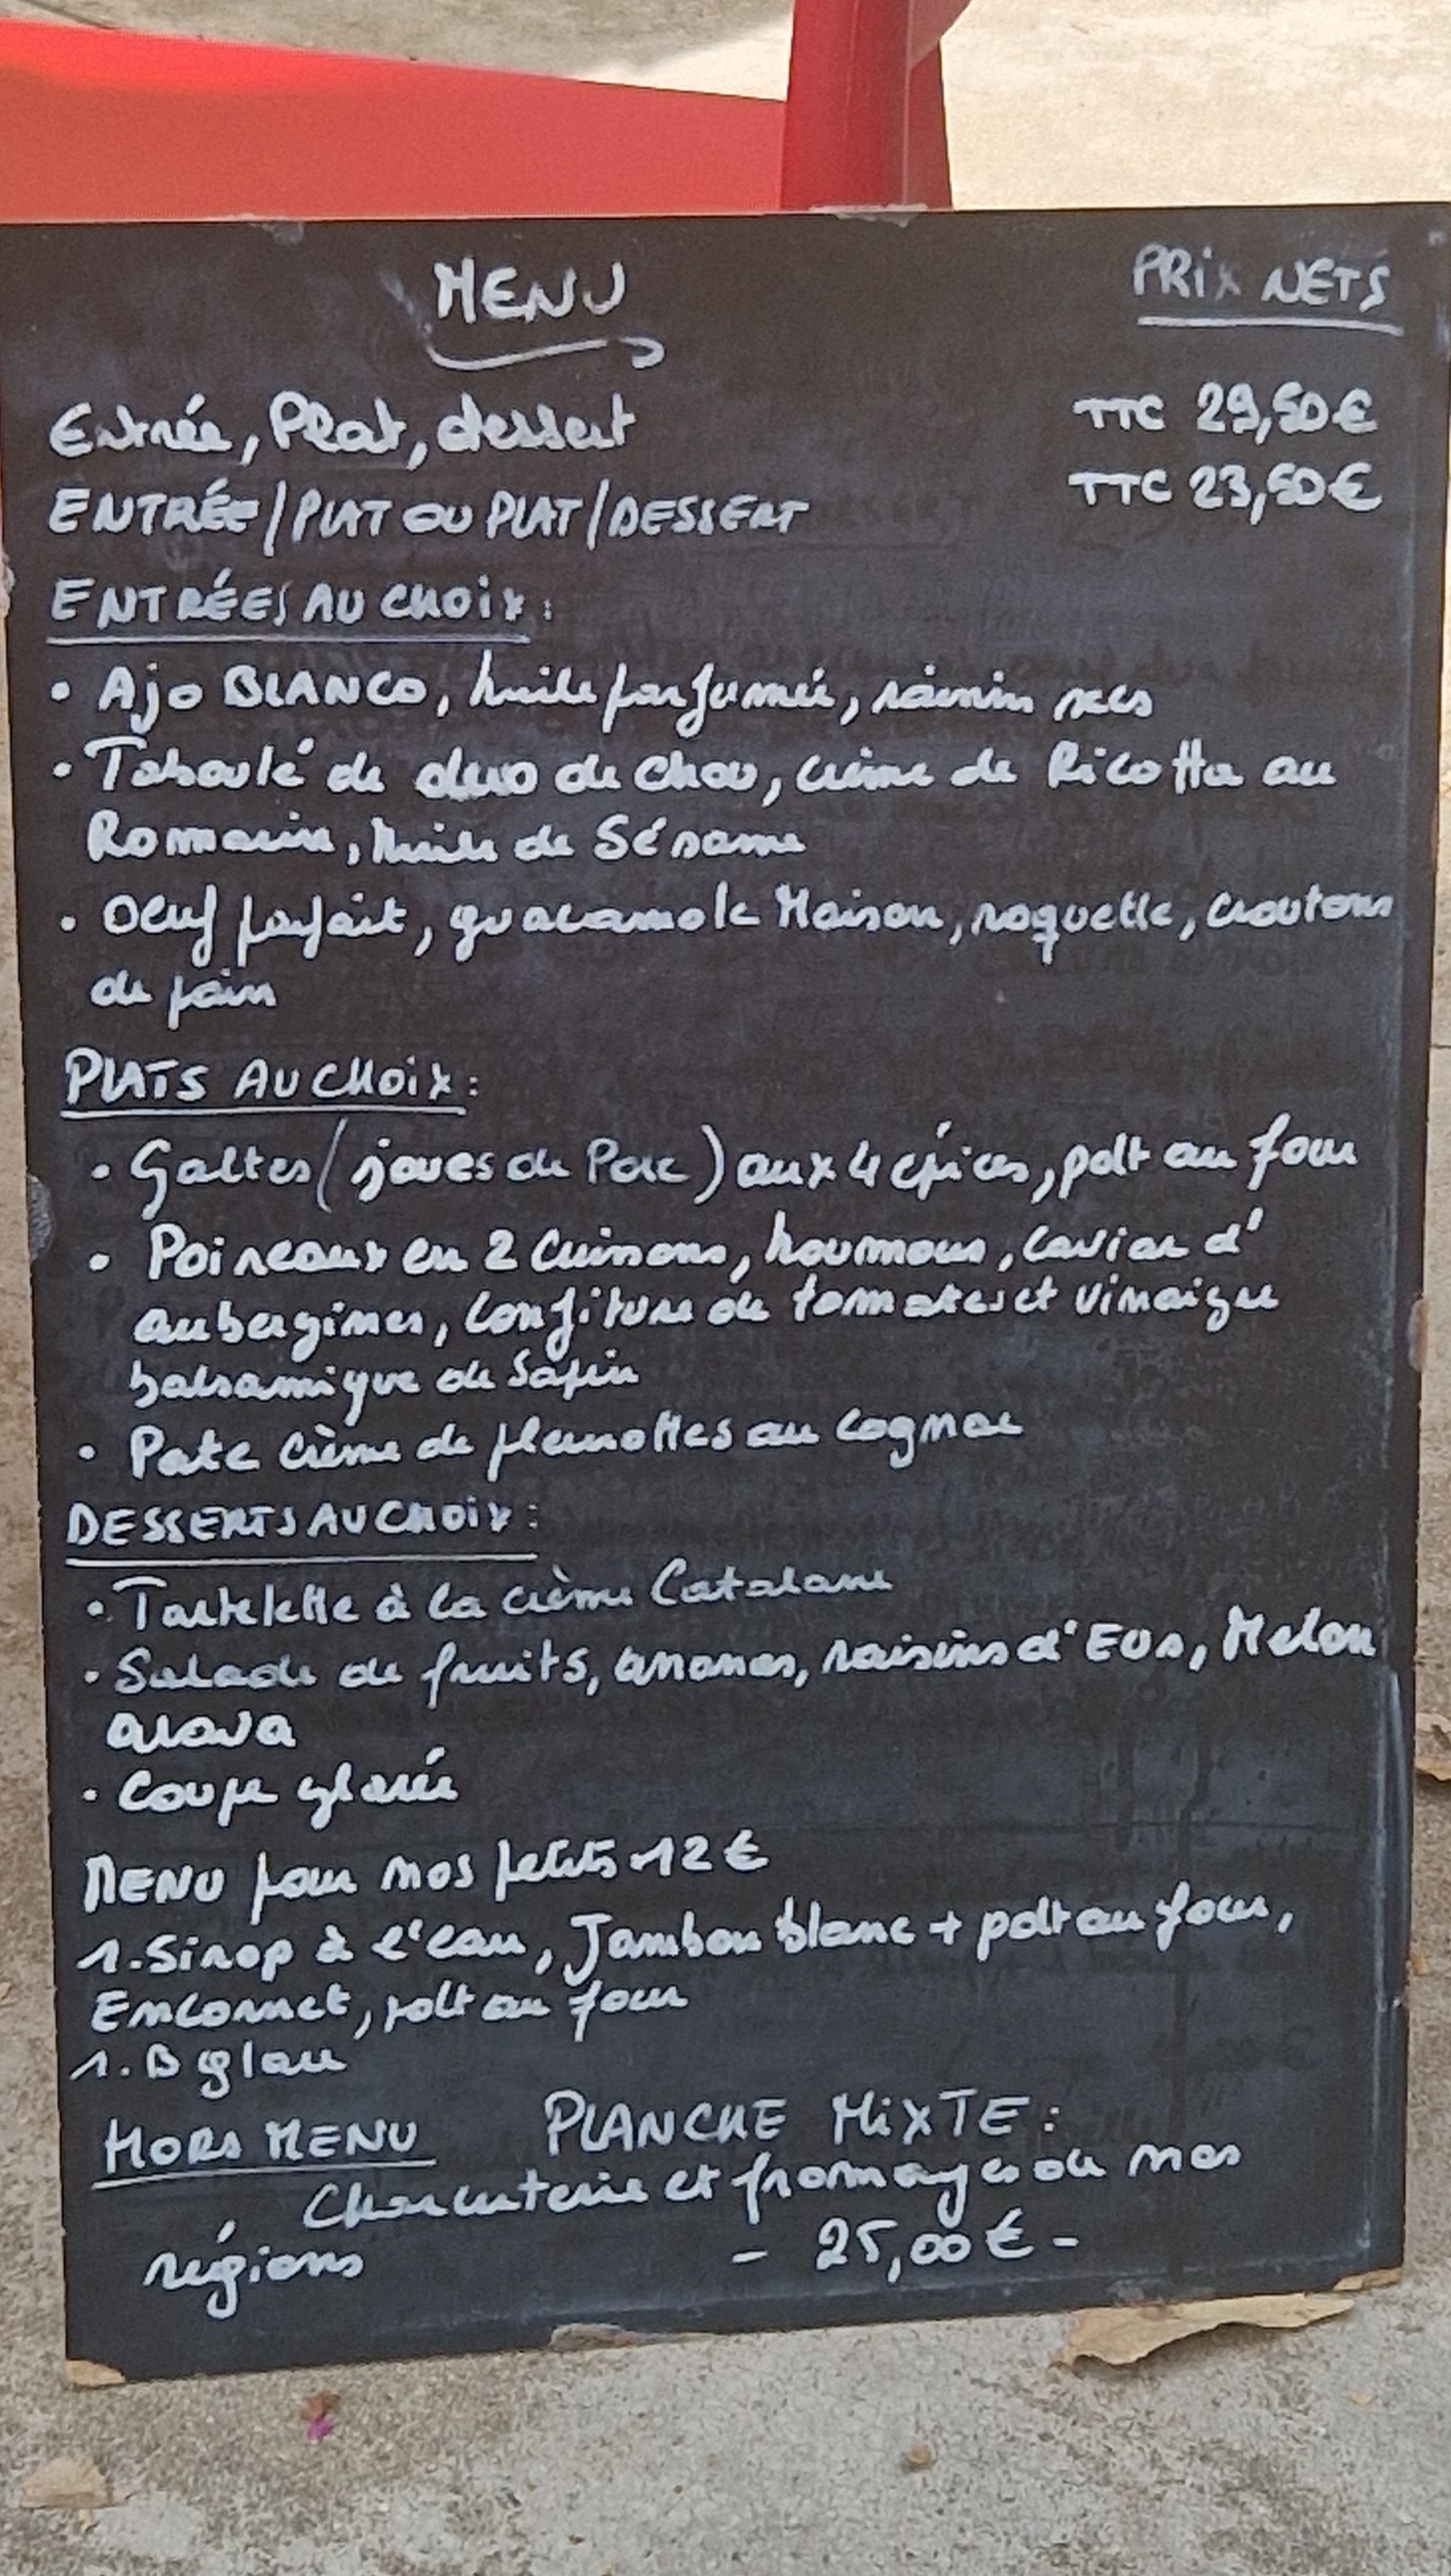 MENU
PRIX NETS
Entrée, Plat, dessert TTC 29,50€
ENTRÉE/PLAT OU PLAT/DESSERT TTC 23,50€
ENTRÉES AU CHOIX:
• Ajo BLANCO, huile parfumée, raisin secs
• Taboulé de duo de chou, crème de Ricotta au
Romarin, huile de Sésame
• Oeuf parfait, guacamole Maison, roquette, croutons
de pain
PLATS AU CHOIX:
• Galtes (joues de Porc) aux 4 épices, pdt au four
• Poireaux en 2 Cuissons, houmous, caviar d'
aubergines, Confiture de tomates et vinaigre
balsamique de Sapin
• Pate Crème de pleurottes au Cognac
DESSERTS AU CHOIX:
• Tartelette à la crème Catalane
• Salade de fruits, ananas, raisins d'EUS, Melon
• Coupe glacée
MENU pour nos petits 12€
1. Sirop à l'eau, Jambon blanc + pdt au four,
Encornet, pdt au four
1. B glace
HORS MENU PLANCHE MIXTE:
Charcuterie et fromages de nos
régions - 25,00€ -